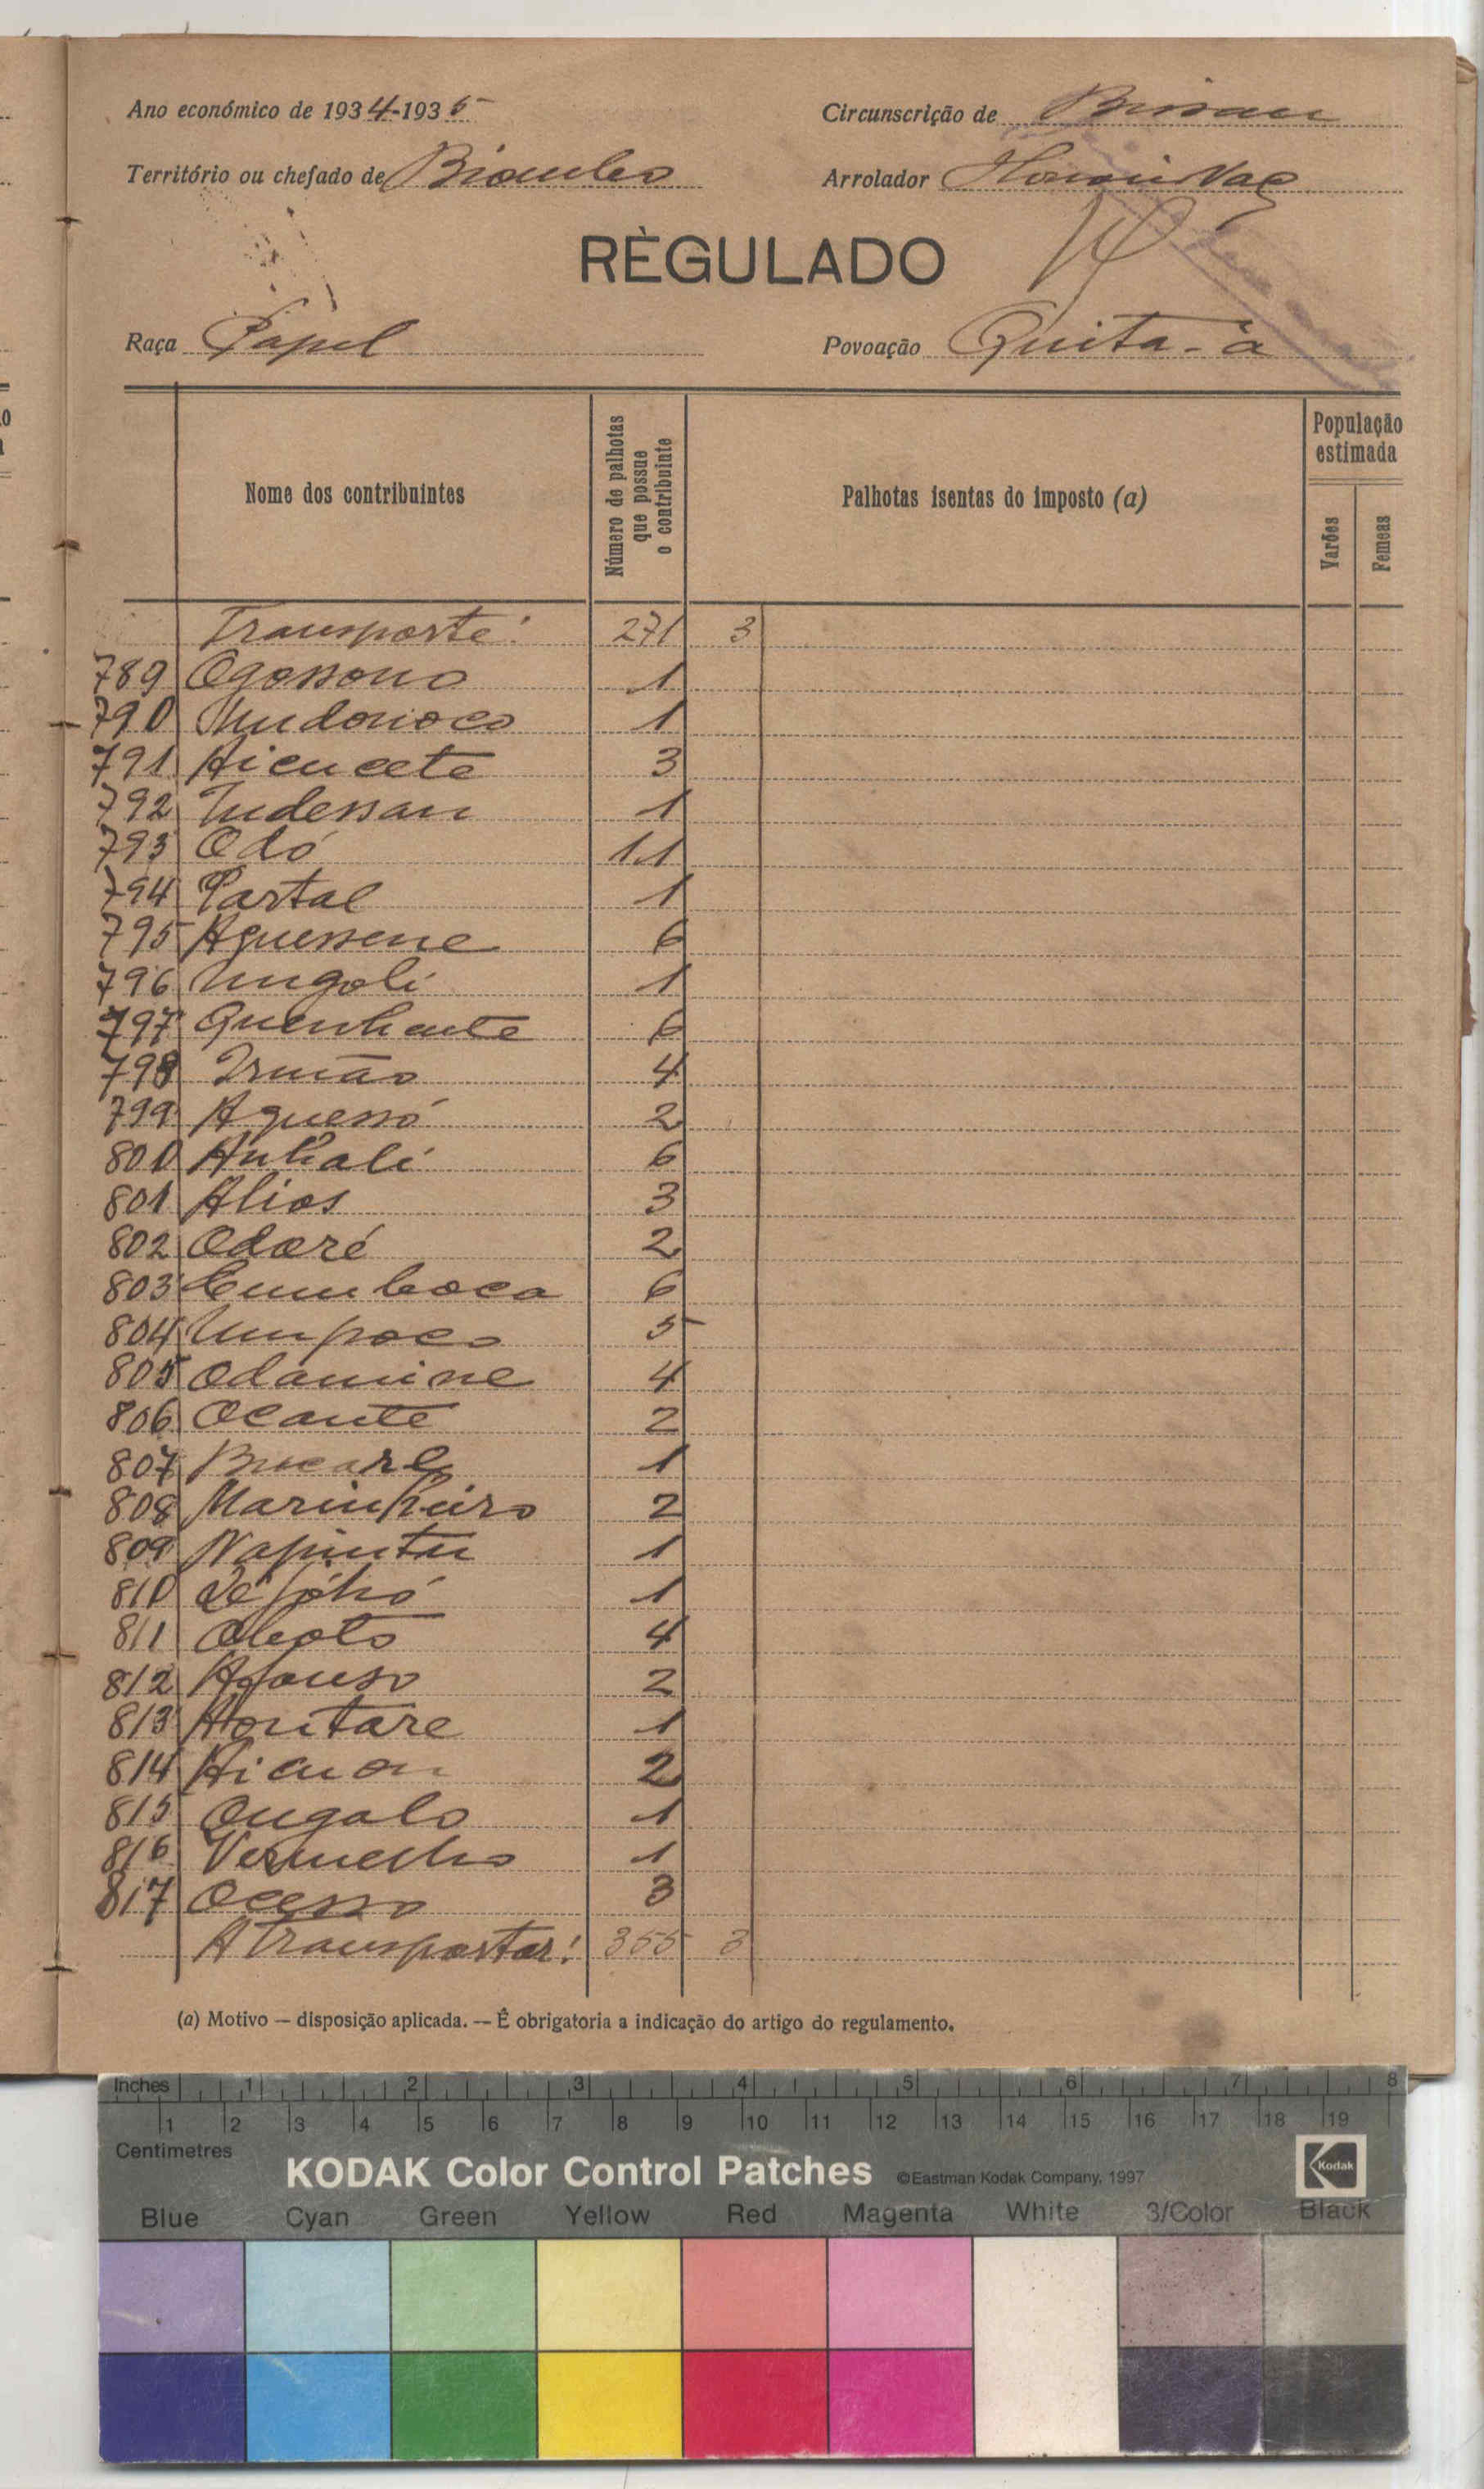 Ano económico de 1934-1935
Circunscrição de Bissau
Território ou chefado de Biombo
Arrolador Vaz
RÈGULADO
Raça Papel
Povoação Quita-à
Nome dos contribuintes
Número de palhotas que possue o contribuinte
Palhotas isentas do imposto (a)
População estimada
Varões
Femeas
Transporte: 271 3
789 Ogossono 1
790 1
791 Aicucete 3
792 Indessan 1
793 Odó 11
794 Partal 1
795 Aguessene 6
796 Ungoli 1
797 Quenhante 6
798 Irmão 4
799 Aguessó 2
800 Anhali 6
801 Alias 3
802 Odoré 2
803 Cumboca 6
804 Umpoco 5
805 Odamine 4
806 Ocante 2
807 1
808 Marinheiro 2
809 Napintu 1
810 1
811 4
812 Afonso 2
813 Montare 1
814 2
815 Ongalo 1
816 Vermelho 1
817 Ocesso 3
A transportar: 355 3
(a) Motivo — disposição aplicada. — É obrigatoria a indicação do artigo do regulamento.
Inches 1 2 3 4 5 6 7 8
1 2 3 4 5 6 7 8 9 10 11 12 13 14 15 16 17 18 19
Centimetres
KODAK Color Control Patches ©Eastman Kodak Company, 1997 Kodak
Blue Cyan Green Yellow Red Magenta White 3/Color Black